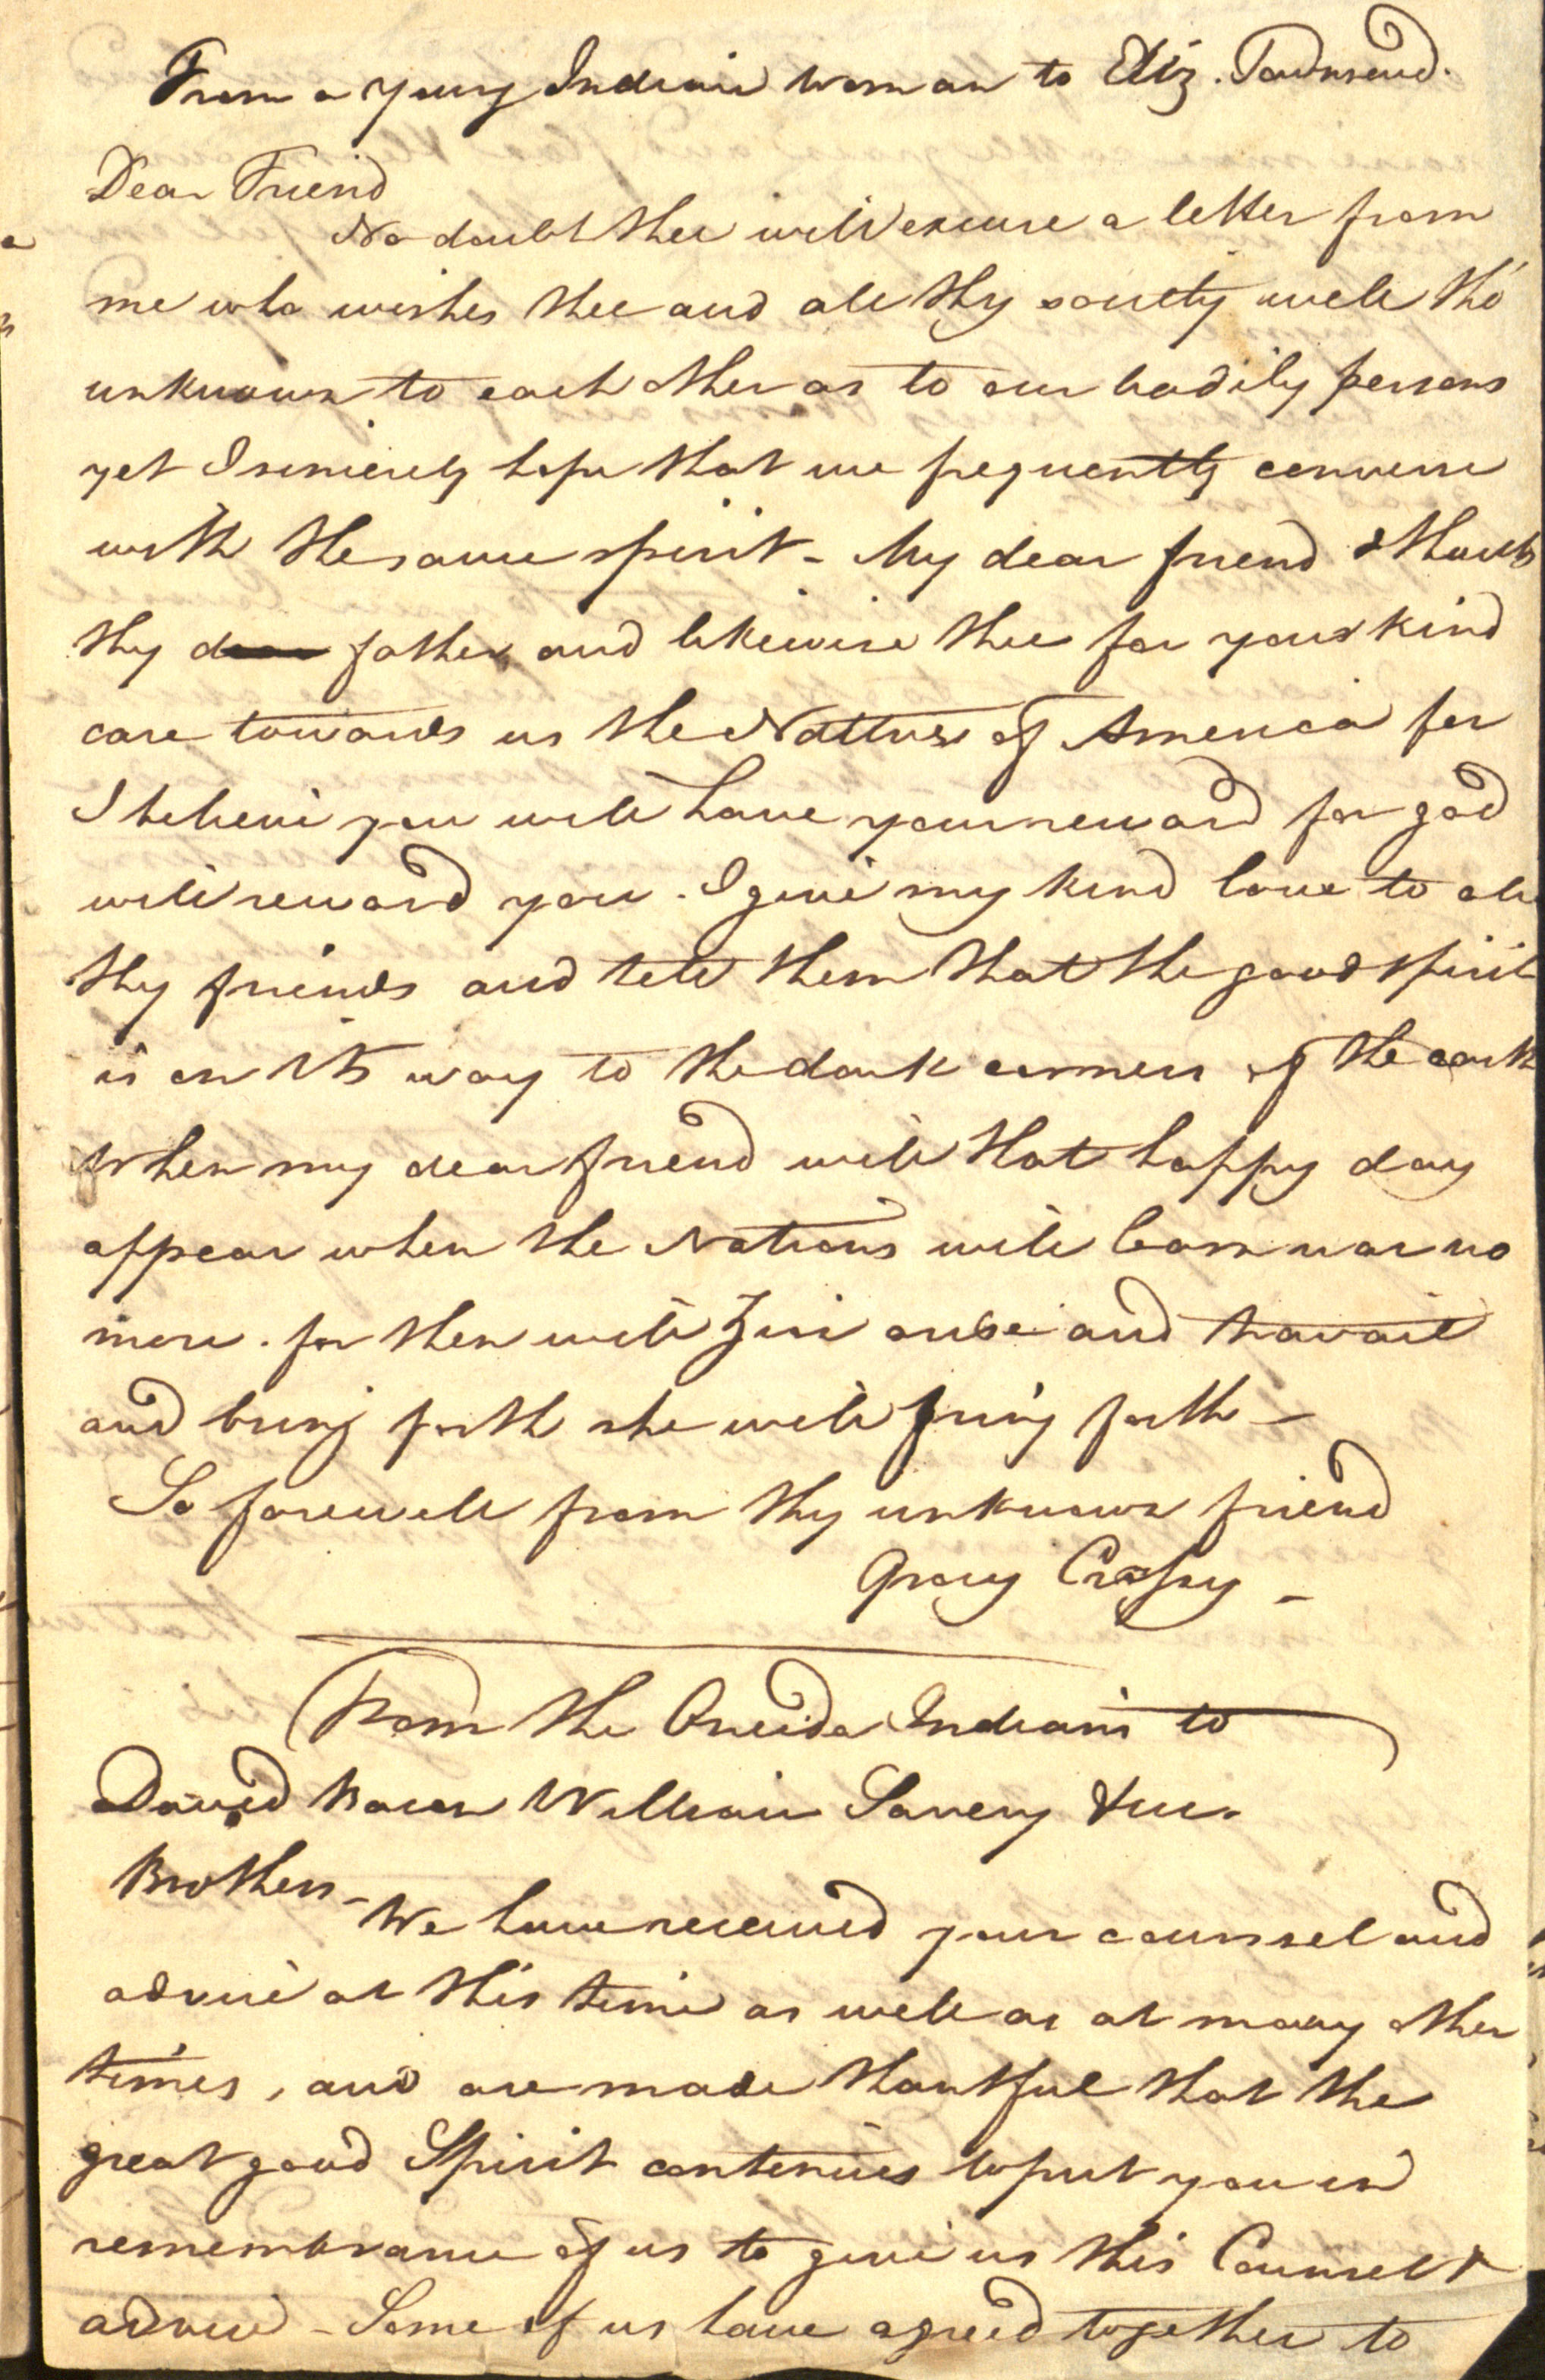 From a young Indian woman to Eliz. Townsend.
Dear Friend
No doubt thee will excuse a letter from
me who wishes thee and all thy society well tho'
unknown to each other as to our bodily persons
yet I sincerely hope that we frequently converse
with the same spirit - My dear friend I thank
thy father and likewise thee for your kind
care towards us the Natives of America for
I believe you will have your reward for god
will reward you. I give my kind love to all
thy friends and tell them that the good spirit
is on its way to the dark corners of the earth
When my dear friend will that happy day
appear when the Nations will learn war no
more. for then will Zion arise and travail
and bring forth she will bring forth -
So farewell from thy unknown friend
Gracy
From the Oneida Indians to
David Bacon William Savery &c.
Brothers -
We have received your counsel and
advice at this time as well as at many other
times, and are made thankful that the
great good Spirit continues to put you in
remembrance of us to give us this Counsel &
advice - Some of us have agreed together to